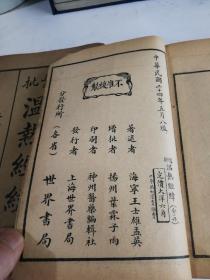 中華民國二十四年五月八版
溫熱經緯
定價大洋六角
不准翻印
著述者　海寧王士雄孟英
增批者　揚州葉霖子雨
印刷者　神州醫藥編輯社
發行者　上海世界書局
分發行所（各省）世界書局
批
溫熱經緯